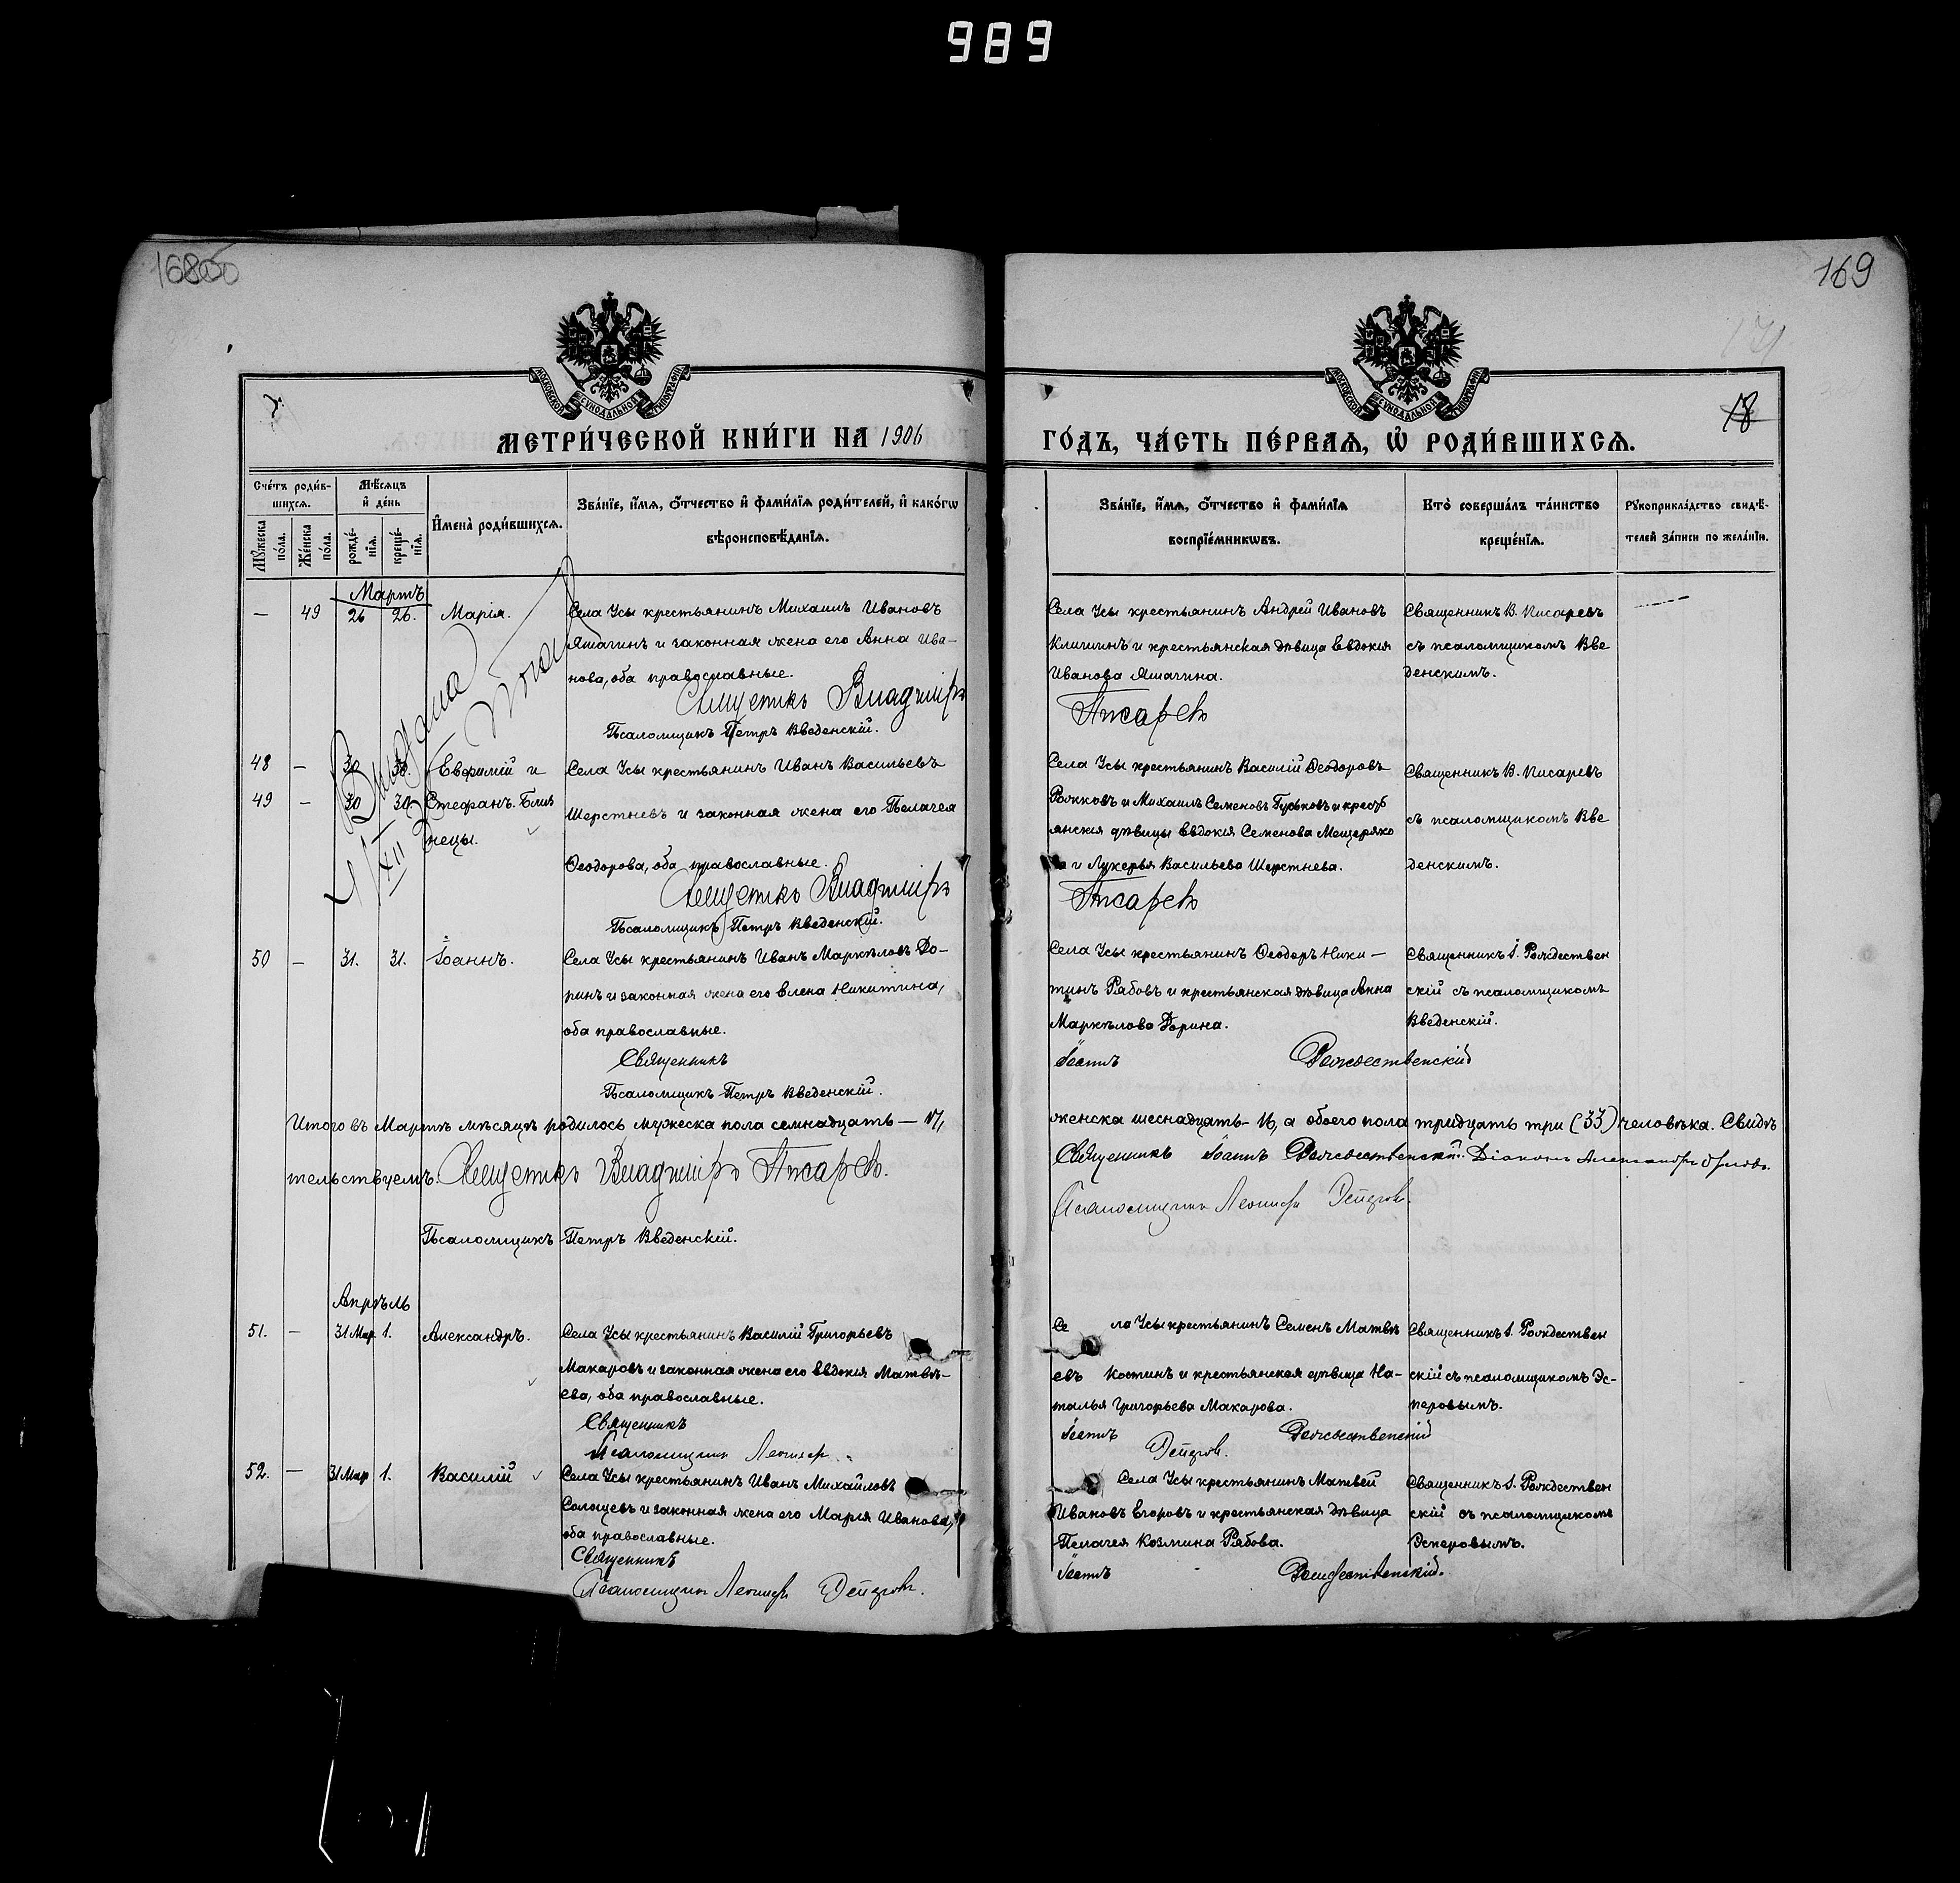 989
169
171
18
МЕТРИ́ЧЕСКОЙ КНИ́ГИ НА 1906
ГО́ДЪ, ЧА́СТЬ ПЕ́РВАѦ, Ѡ҆ РОДИ́ВШИХСѦ.
Сче́тъ роди́в-
шихсѧ.
Мꙋ́жеска по́ла.
Же́нска по́ла.
Мѣ́сѧцъ
и҆ де́нь
рожде́-
нїѧ.
креще́-
нїѧ.
И҆мена̀ роди́вшихсѧ.
Зва́нїе, и҆́мѧ, ѻ҆́тчество и҆ фами́лїѧ роди́телей, и҆ како́гѡ
вѣроисповѣ́данїѧ.
Зва́нїе, и҆́мѧ, ѻ҆́тчество и҆ фами́лїѧ
воспрїе́мникѡвъ.
Кто̀ соверша́лъ та́инство
креще́нїѧ.
Рꙋкоприкла́дство свидѣ́-
телей за́писи по жела́нїю.
Мартъ
— 49 26 26. Марія.
Села Усы крестьянинъ Михаилъ Ивановъ
Яшагинъ и законная жена его Анна Ива-
нова, оба православные.
Священникъ Владиміръ
Псаломщикъ Петръ Введенскій.
Села Усы крестьянинъ Андрей Ивановъ
Кличинъ и крестьянская дѣвица Евдокія
Иванова Яшагина.
Писаревъ
Священникъ В. Писаревъ
съ псаломщикомъ Вве
денскимъ.
48 — 30 30. Евфимій и
49 — 30 30 Стефанъ. Близ
нецы.
Села Усы крестьянинъ Иванъ Васильевъ
Шерстневъ и законная жена его Пелагея
Ѳеодорова, оба православные.
Священникъ Владиміръ
Псаломщикъ Петръ Введенскій.
Села Усы крестьянинъ Василій Ѳеодоровъ
Рожковъ и Михаилъ Семеновъ Гуськовъ и кресть
янскія дѣвицы Евдокія Семенова Мещеряко
ва и Лукерья Васильева Шерстнева.
Писаревъ
Священникъ В. Писаревъ
съ псаломщикомъ Вве
денскимъ.
50 — 31. 31. Іоаннъ.
Села Усы крестьянинъ Иванъ Маркѣловъ До-
ринъ и законная жена его Елена Никитина,
оба православные.
Священникъ
Псаломщикъ Петръ Введенскій.
Села Усы крестьянинъ Ѳеодоръ Ники —
тинъ Рябовъ и крестьянская дѣвица Анна
Маркѣлова Дорина.
Іоаннъ Рождественскій
Священникъ І. Рождествен
скій съ псаломщикомъ
Введенскій.
Итого въ Мартѣ мѣсяцѣ родилось мужеска пола семнадцать — 17,
женска шеснадцать — 16, а обоего пола тридцать три (33) человѣка. Свидѣ
тельствуемъ: Священникъ Владиміръ Писаревъ.
Священникъ Іоаннъ Рождественскій. Діаконъ Александръ Орловъ.
Псаломщикъ Леонидъ Эсперовъ.
Псаломщикъ Петръ Введенскій.
Апрѣль
51. — 31 Мар. 1. Александръ.
Села Усы крестьянинъ Василій Григорьевъ
Макаровъ и законная жена его Евдокія Матвѣ-
ева, оба православные.
Священникъ
Псаломщикъ Леонидъ
Села Усы крестьянинъ Семенъ Матвѣ
евъ Костинъ и крестьянская дѣвица На-
талья Григорьева Макарова.
Іоаннъ Рождественскій
Эсперовъ.
Священникъ І. Рождествен
скій съ псаломщикомъ Эс-
перовымъ.
52. — 31 Мар 1. Василій
Села Усы крестьянинъ Иванъ Михайловъ
Солощевъ и законная жена его Марія Иванова,
оба православные.
Священникъ
Псаломщикъ Леонидъ Эсперовъ.
Села Усы крестьянинъ Матвей
Ивановъ Егоровъ и крестьянская дѣвица
Пелагея Козмина Рябова.
Іоаннъ Рождественскій.
Священникъ І. Рождествен
скій съ псаломщикомъ
Эсперовымъ.